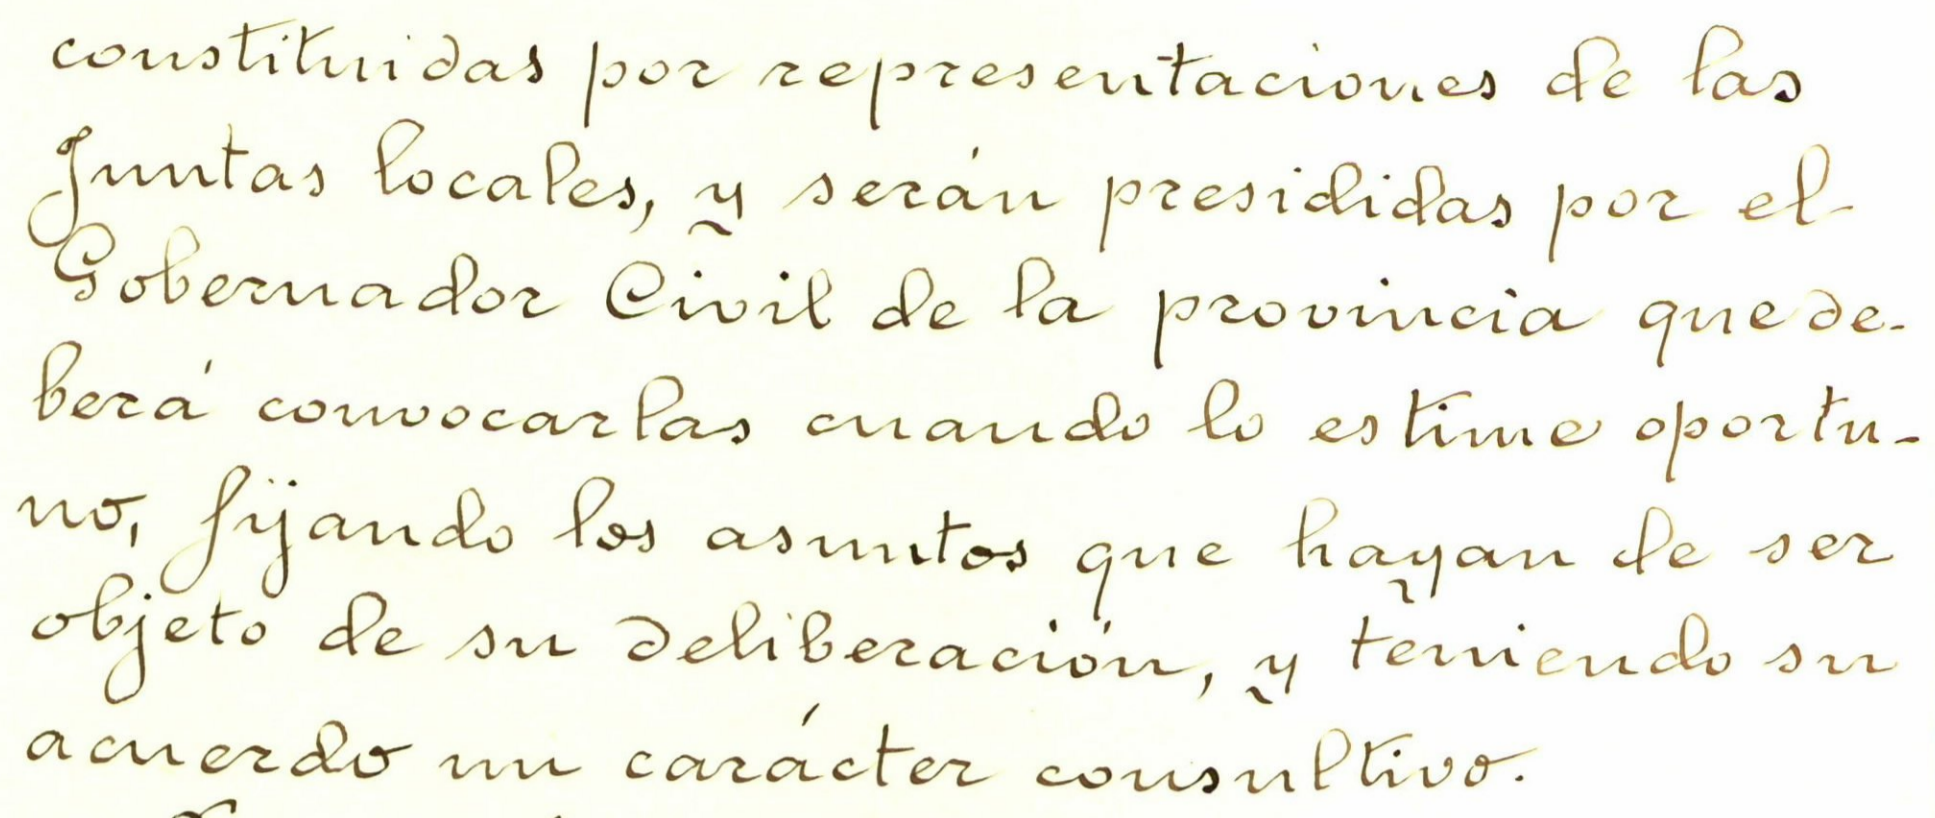 constituidas por representaciones de las
Juntas locales, y serán presididas por el
Gobernador Civil de la provincia que de-
berá convocarlas cuando lo estime oportu-
no, fijando los asuntos que hayan de ser
objeto de su deliberación, y teniendo su
acuerdo un carácter consultivo.